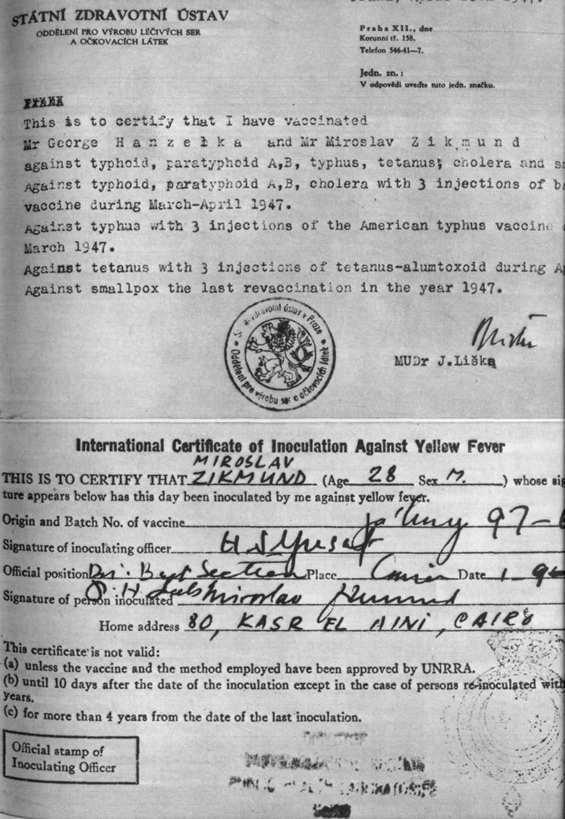 STÁTNÍ ZDRAVOTNÍ ÚSTAV
ODDĚLENÍ PRO VÝROBU LÉČIVÝCH SER
A OČKOVACÍCH LÁTEK
1947.
Praha XII., dne
Korunní tř. 158.
Telefon 546-41—7.
Jedn. zn.:
V odpovědi uveďte tuto jedn. značku.
This is to certify that I have vaccinated
Mr George Hanzelka and Mr Miroslav Zikmund
against typhoid, paratyphoid A,B, typhus, tetanus, cholera and
Against typhoid, paratyphoid A,B, cholera with 3 injections of
vaccine during March-April 1947.
Against typhus with 3 injections of the American typhus vaccine
March 1947.
Against tetanus with 3 injections of tetanus-alumtoxoid during
Against smallpox the last revaccination in the year 1947.
Oddělení pro výrobu ser a očkovacích látek
MUDr J.Liška
International Certificate of Inoculation Against Yellow Fever
MIROSLAV
THIS IS TO CERTIFY THAT ZIKMUND (Age 28 Sex M.) whose
ture appears below has this day been inoculated by me against yellow fever.
Origin and Batch No. of vaccine 97-
Signature of inoculating officer
Official position Section Place Date
Signature of person inoculated Miroslav Zikmund
Home address 80, KASR EL AINI, CAIRO
This certificate is not valid:
(a) unless the vaccine and the method employed have been approved by UNRRA.
(b) until 10 days after the date of the inoculation except in the case of persons re-inoculated
years.
(c) for more than 4 years from the date of the last inoculation.
Official stamp of
Inoculating Officer